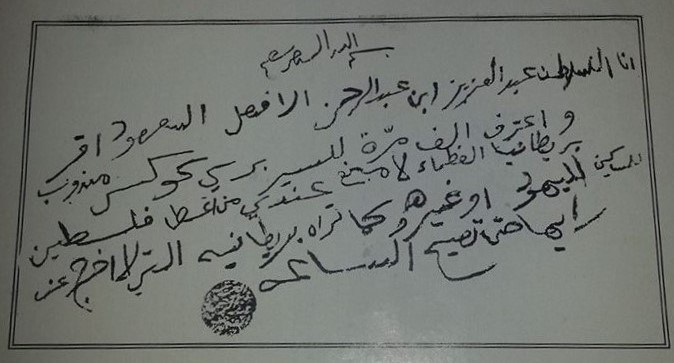 بسم الله الرحمن الرحيم
انا السلطان عبد العزيز ابن عبد الرحمن الافصل السعود اقر
واعترف الف مرّة للسير برسي كوكس مندوب
بريطانيا العظماء لا مانع عندي من اعطا فلسطين
للمساكين اليهود او غيرهم وكما تراه بريطانيه التي لا اخرج عن
رايها حتى تصيح الساعه